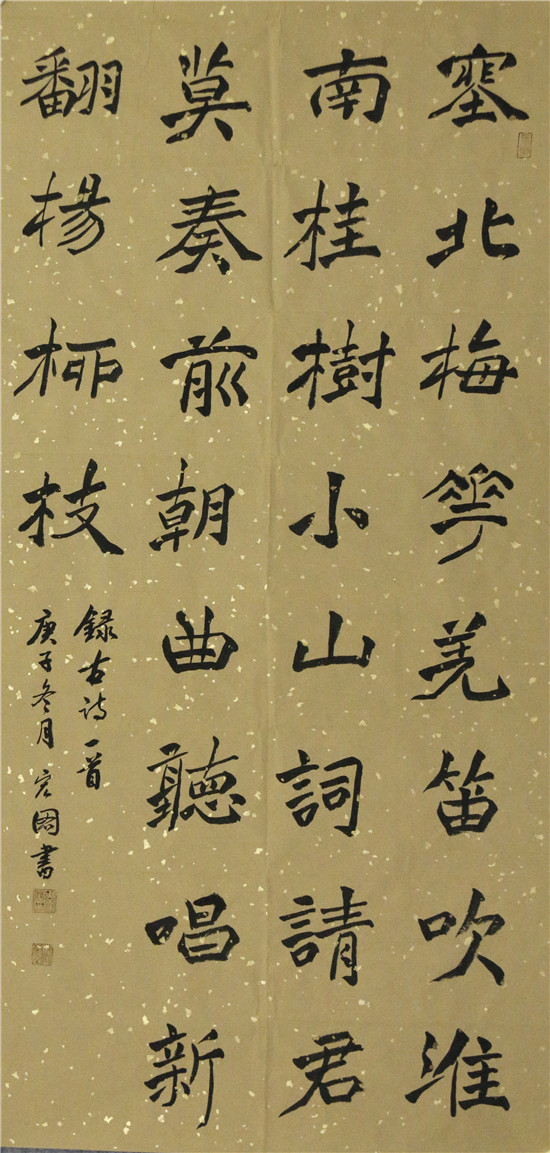 塞北梅花羌笛吹淮
南桂樹小山詞請君
莫奏前朝曲聽唱新
翻楊柳枝
録古诗一首
庚子冬月宏图書